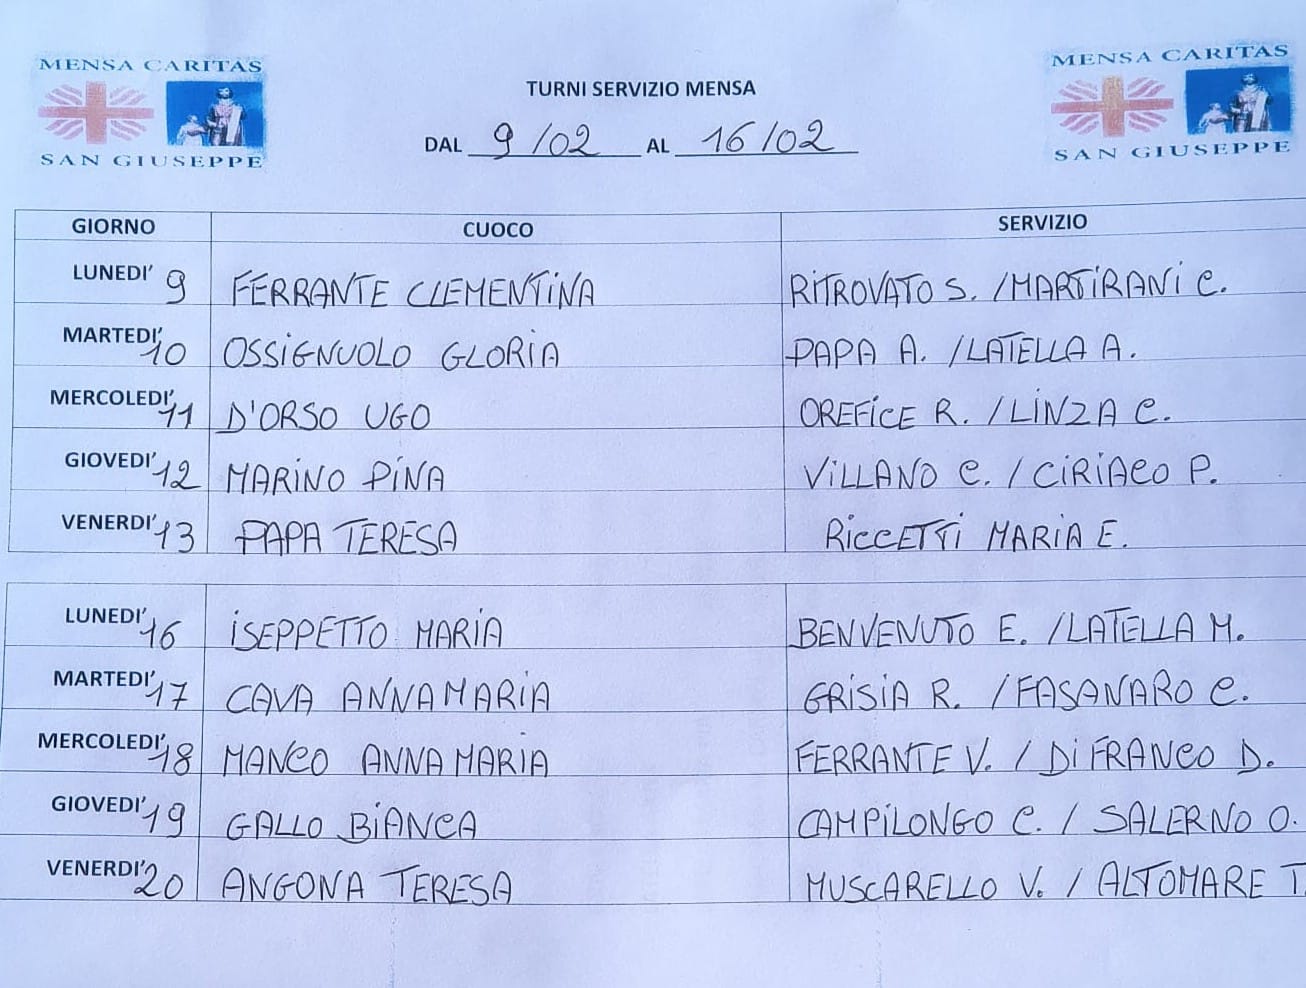 MENSA CARITAS
SAN GIUSEPPE
TURNI SERVIZIO MENSA
DAL 9/02 AL 16/02
MENSA CARITAS
SAN GIUSEPPE
GIORNO CUOCO SERVIZIO
LUNEDI' 9 FERRANTE CLEMENTINA RITROVATO S. /MARTIRANI C.
MARTEDI' 10 OSSIGNUOLO GLORIA PAPA A. /LATELLA A.
MERCOLEDI' 11 D'ORSO UGO OREFICE R. /LINZA C.
GIOVEDI' 12 MARINO PINA VILLANO C. / CIRIACO P.
VENERDI' 13 PAPA TERESA RICCETTI MARIA E.
LUNEDI' 16 ISEPPETTO MARIA BENVENUTO E. /LATELLA M.
MARTEDI' 17 CAVA ANNAMARIA GRISIA R. /FASANARO C.
MERCOLEDI' 18 MANCO ANNAMARIA FERRANTE V. / DI FRANCO D.
GIOVEDI' 19 GALLO BIANCA CAMPILONGO C. / SALERNO O.
VENERDI' 20 ANGONA TERESA MUSCARELLO V. / ALTOMARE T.